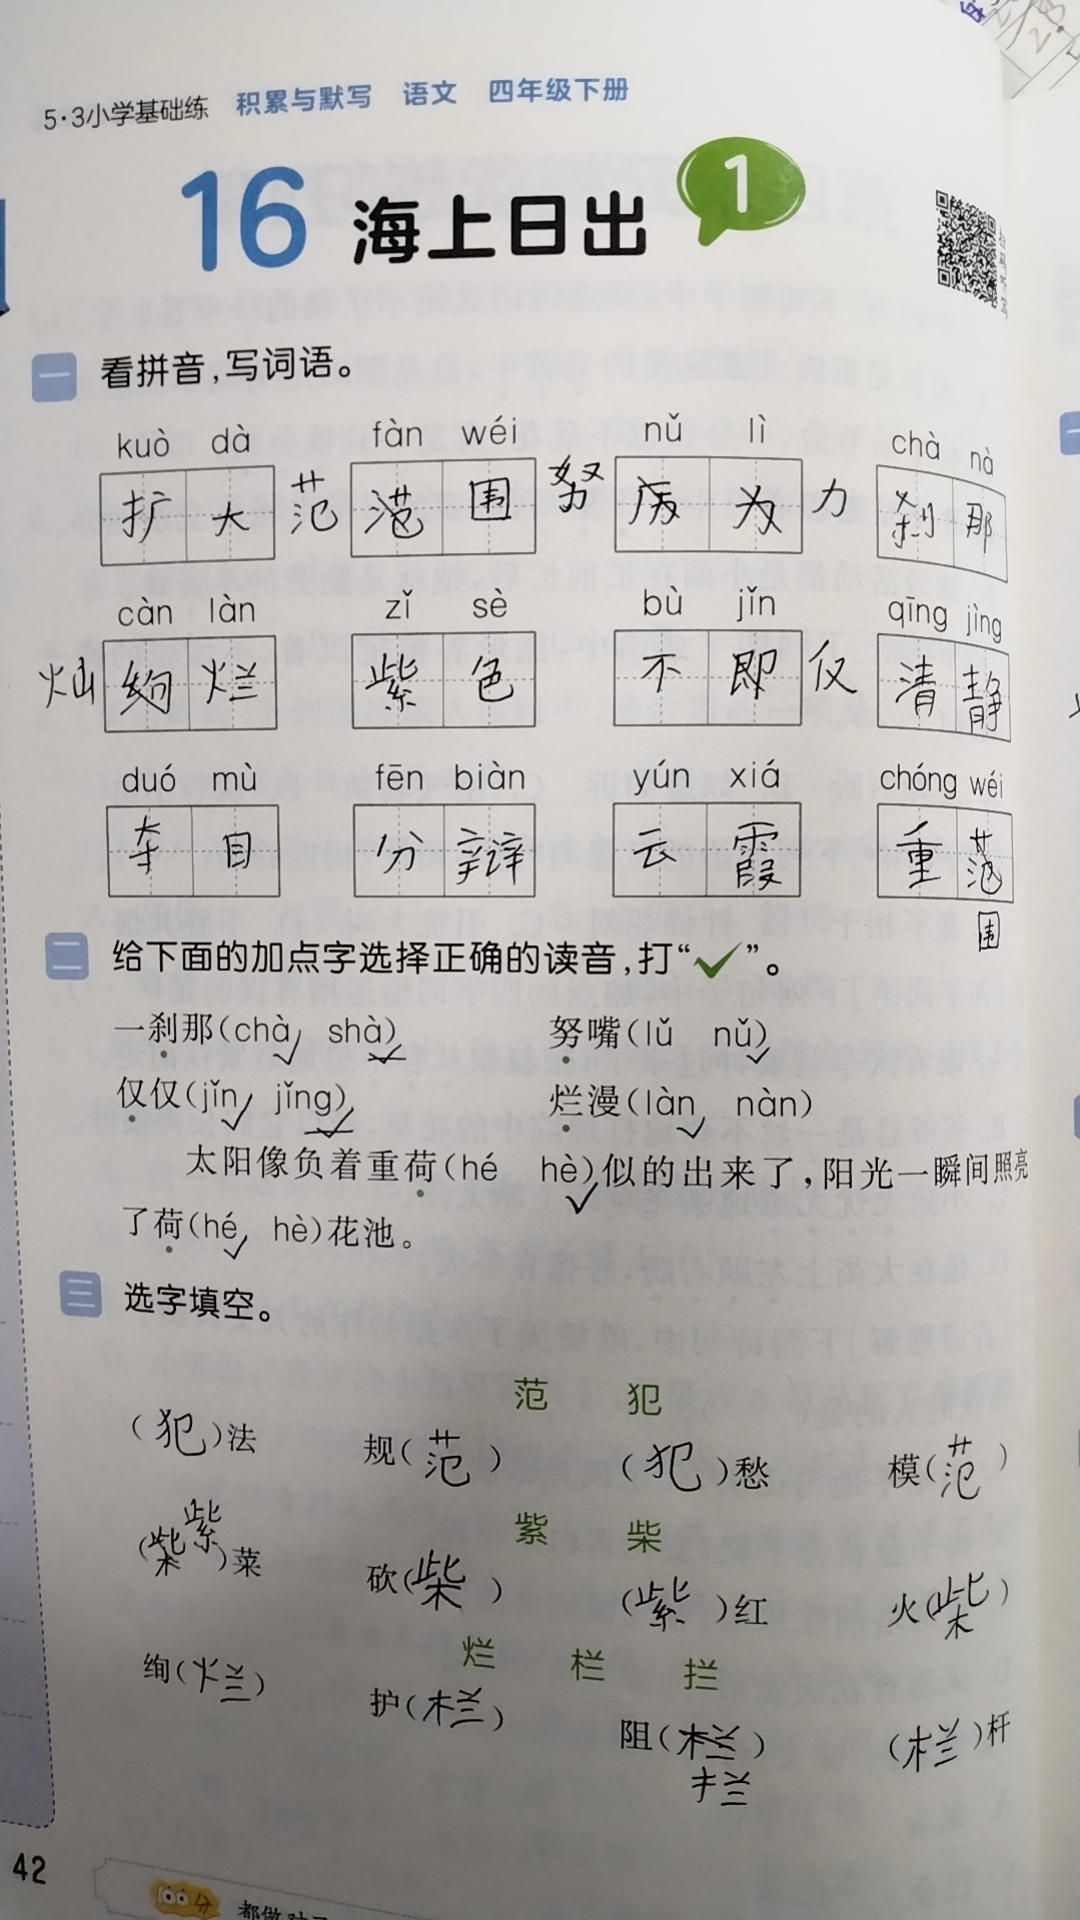 5·3小学基础练 积累与默写 语文 四年级下册
16 海上日出 1
一 看拼音,写词语。
kuò dà fàn wéi nǔ lì chà nà
扩大 范 范围 努 为 力 刹那
càn làn zǐ sè bù jǐn qīng jìng
灿 绚烂 紫色 不即 仅 清静
duó mù fēn biàn yún xiá chóng wéi
夺目 分辩 云霞 重范
围
二 给下面的加点字选择正确的读音,打“✓”。
一刹那(chà✓ shà✓) 努嘴(lǔ nǔ✓)
仅仅(jǐn✓ jǐng✓) 烂漫(làn✓ nàn)
太阳像负着重荷(hé hè✓)似的出来了,阳光一瞬间照亮
了荷(hé✓ hè)花池。
三 选字填空。
范 犯
(犯)法 规(范) (犯)愁 模(范)
紫 柴
紫
(柴)菜 砍(柴) (紫)红 火(柴)
烂 栏 拦
绚(烂) 护(栏) 阻(栏) (栏)杆
拦
42
100分